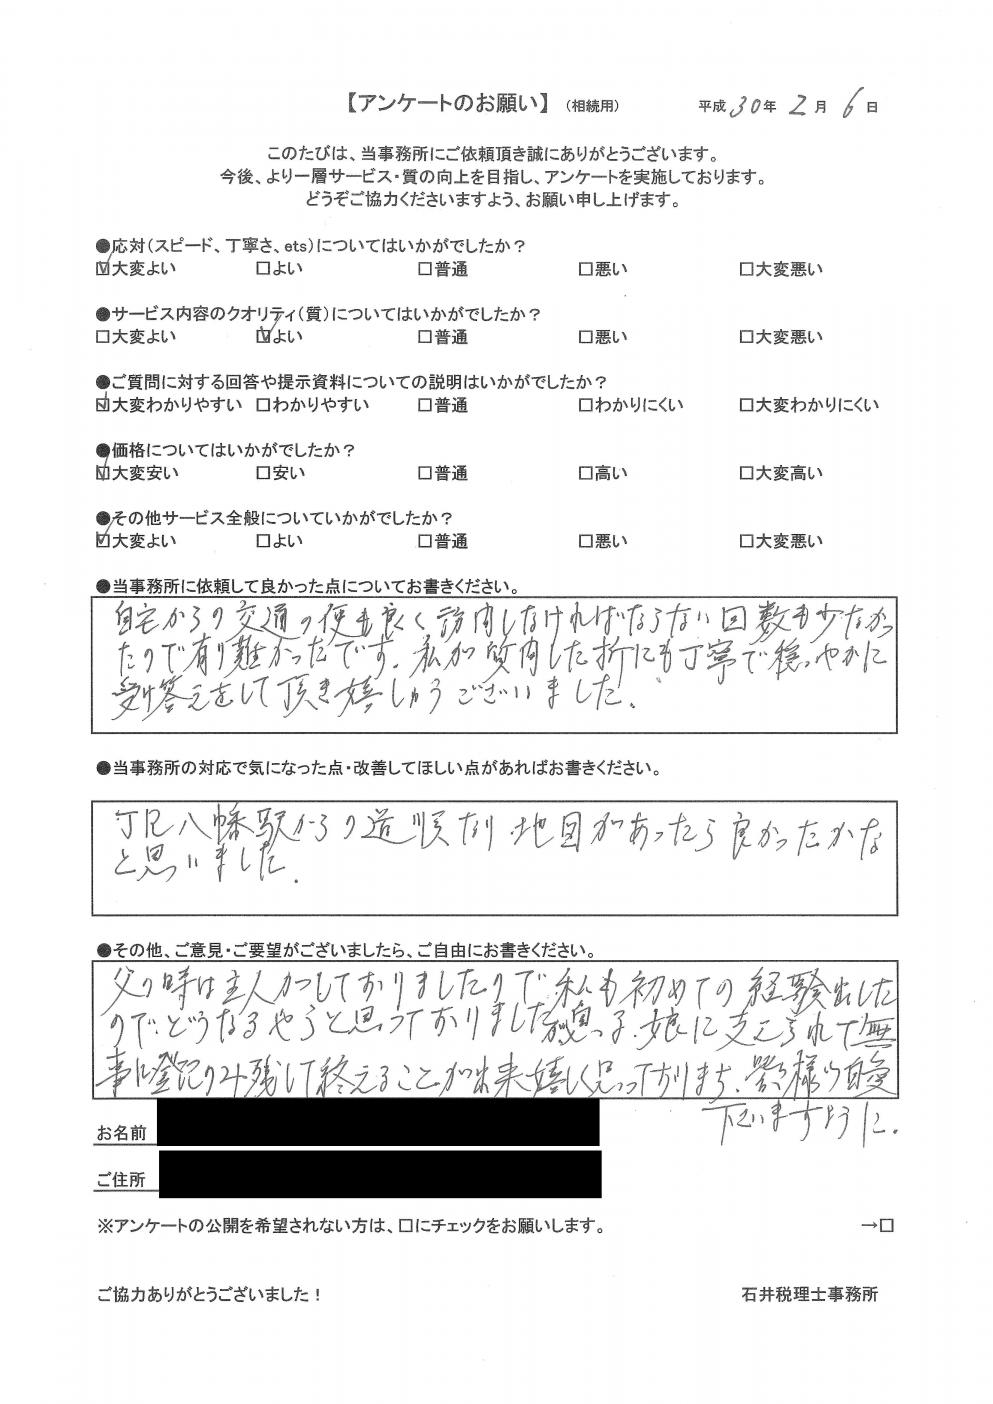 【アンケートのお願い】 (相続用) 平成30年2月6日
このたびは、当事務所にご依頼頂き誠にありがとうございます。
今後、より一層サービス・質の向上を目指し、アンケートを実施しております。
どうぞご協力くださいますよう、お願い申し上げます。
●応対(スピード、丁寧さ、ets)についてはいかがでしたか?
☑大変よい □よい □普通 □悪い □大変悪い
●サービス内容のクオリティ(質)についてはいかがでしたか?
□大変よい ☑よい □普通 □悪い □大変悪い
●ご質問に対する回答や提示資料についての説明はいかがでしたか?
☑大変わかりやすい □わかりやすい □普通 □わかりにくい □大変わかりにくい
●価格についてはいかがでしたか?
☑大変安い □安い □普通 □高い □大変高い
●その他サービス全般についていかがでしたか?
☑大変よい □よい □普通 □悪い □大変悪い
●当事務所に依頼して良かった点についてお書きください。
自宅からの交通の便も良く訪問しなければならない回数も少なかっ
たので有り難かったです。私が質問した折にも丁寧で穏やかに
受け答えをして頂き嬉しゅうございました。
●当事務所の対応で気になった点・改善してほしい点があればお書きください。
JR八幡駅からの道順なり地図があったら良かったかな
と思いました。
●その他、ご意見・ご要望がございましたら、ご自由にお書きください。
父の時は主人がしておりましたので私も初めての経験出した
のでどうなるやらと思っておりました 息子、娘に支えられて無
事に登記のみ残して終えることが出来嬉しく思っております。皆々様ご自愛
下さいますように。
お名前
ご住所
※アンケートの公開を希望されない方は、□にチェックをお願いします。 →□
ご協力ありがとうございました! 石井税理士事務所